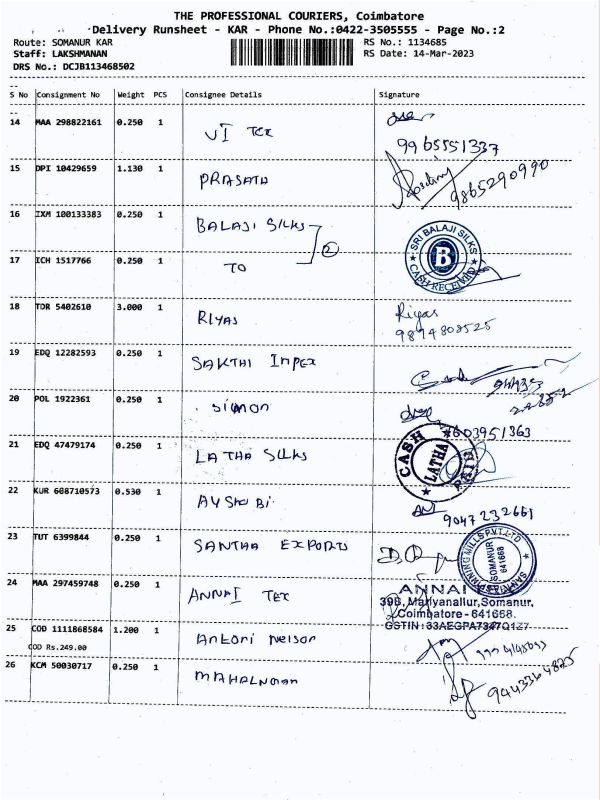 THE PROFESSIONAL COURIERS, Coimbatore
Delivery Runsheet - KAR - Phone No.:0422-3505555 - Page No.:2
Route: SOMANUR KAR
RS No.: 1134685
Staff: LAKSHMANAN
RS Date: 14-Mar-2023
DRS No.: DCJB113468502
S No Consignment No Weight PCS Consignee Details Signature
14 MAA 298822161 0.250 1 VI TEX
9965551337
15 DPI 10429659 1.130 1 PRASATH
9865290990
16 IXM 100133383 0.250 1 BALAJI SILKS
2
SRI BALAJI SILKS
B
CASH RECEIVED
17 ICH 1517766 0.250 1 TO
18 TDR 5402610 3.000 1 RIYAS Riyas
9894808525
19 EDQ 12282593 0.250 1 SAKTHI IMPEX
20 POL 1922361 0.250 1 SIMON
7603951363
21 EDQ 47479174 0.250 1 LATHA SILKS
CASH
LATHA
PAID
22 KUR 608710573 0.530 1
9047232661
23 TUT 6399844 0.250 1 SANTHA EXPORTS
SOMANUR
641668
24 MAA 297459748 0.250 1 ANNAI TEX
ANNAI
39B, Mariyanallur,Somanur,
Coimbatore - 641668.
GSTIN:33AEGPA7347Q1Z7
25 COD 1111868584 1.200 1 ANTONI NELSON
COD Rs.249.00
26 KCM 50030717 0.250 1
9443364825